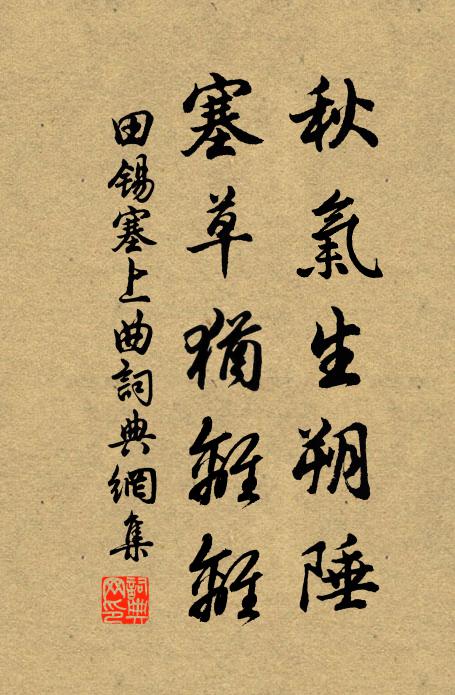 秋氣生朔陲
塞草猶離離
田锡塞上曲詞典網集
詞典网印